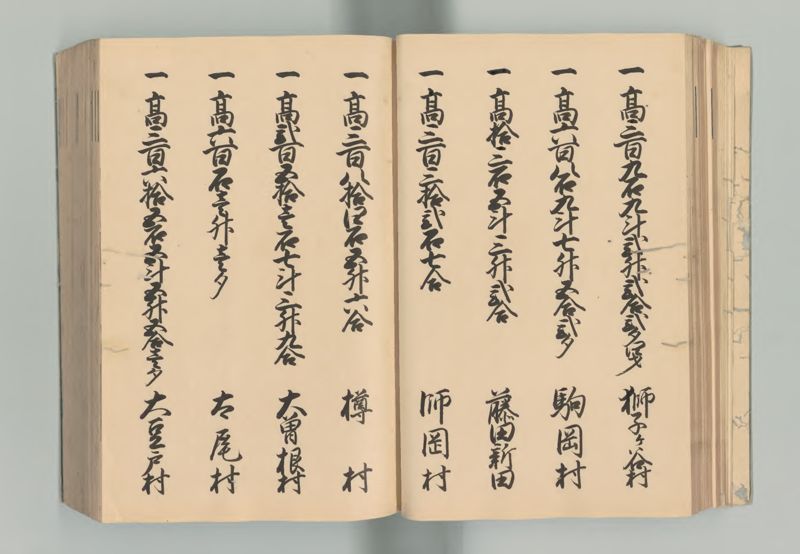 一高三百九石九斗弐升弐合弐夕四才 獅子ヶ谷村
一高六百八石九斗七升五合弐夕 駒岡村
一高拾三石五斗三升弐合 藤田新田
一高三百三拾弐石七合 師岡村
一高三百八拾四石五升六合 樽村
一高弐百五拾壱石七斗三升九合 大曽根村
一高六百石壱升壱夕 太尾村
一高三百六拾五石五斗五升五合壱夕 大豆戸村